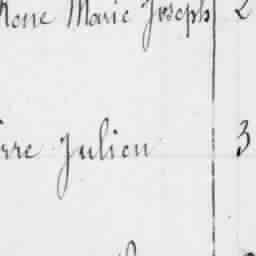 Marie Joseph 2
rre Julien 3